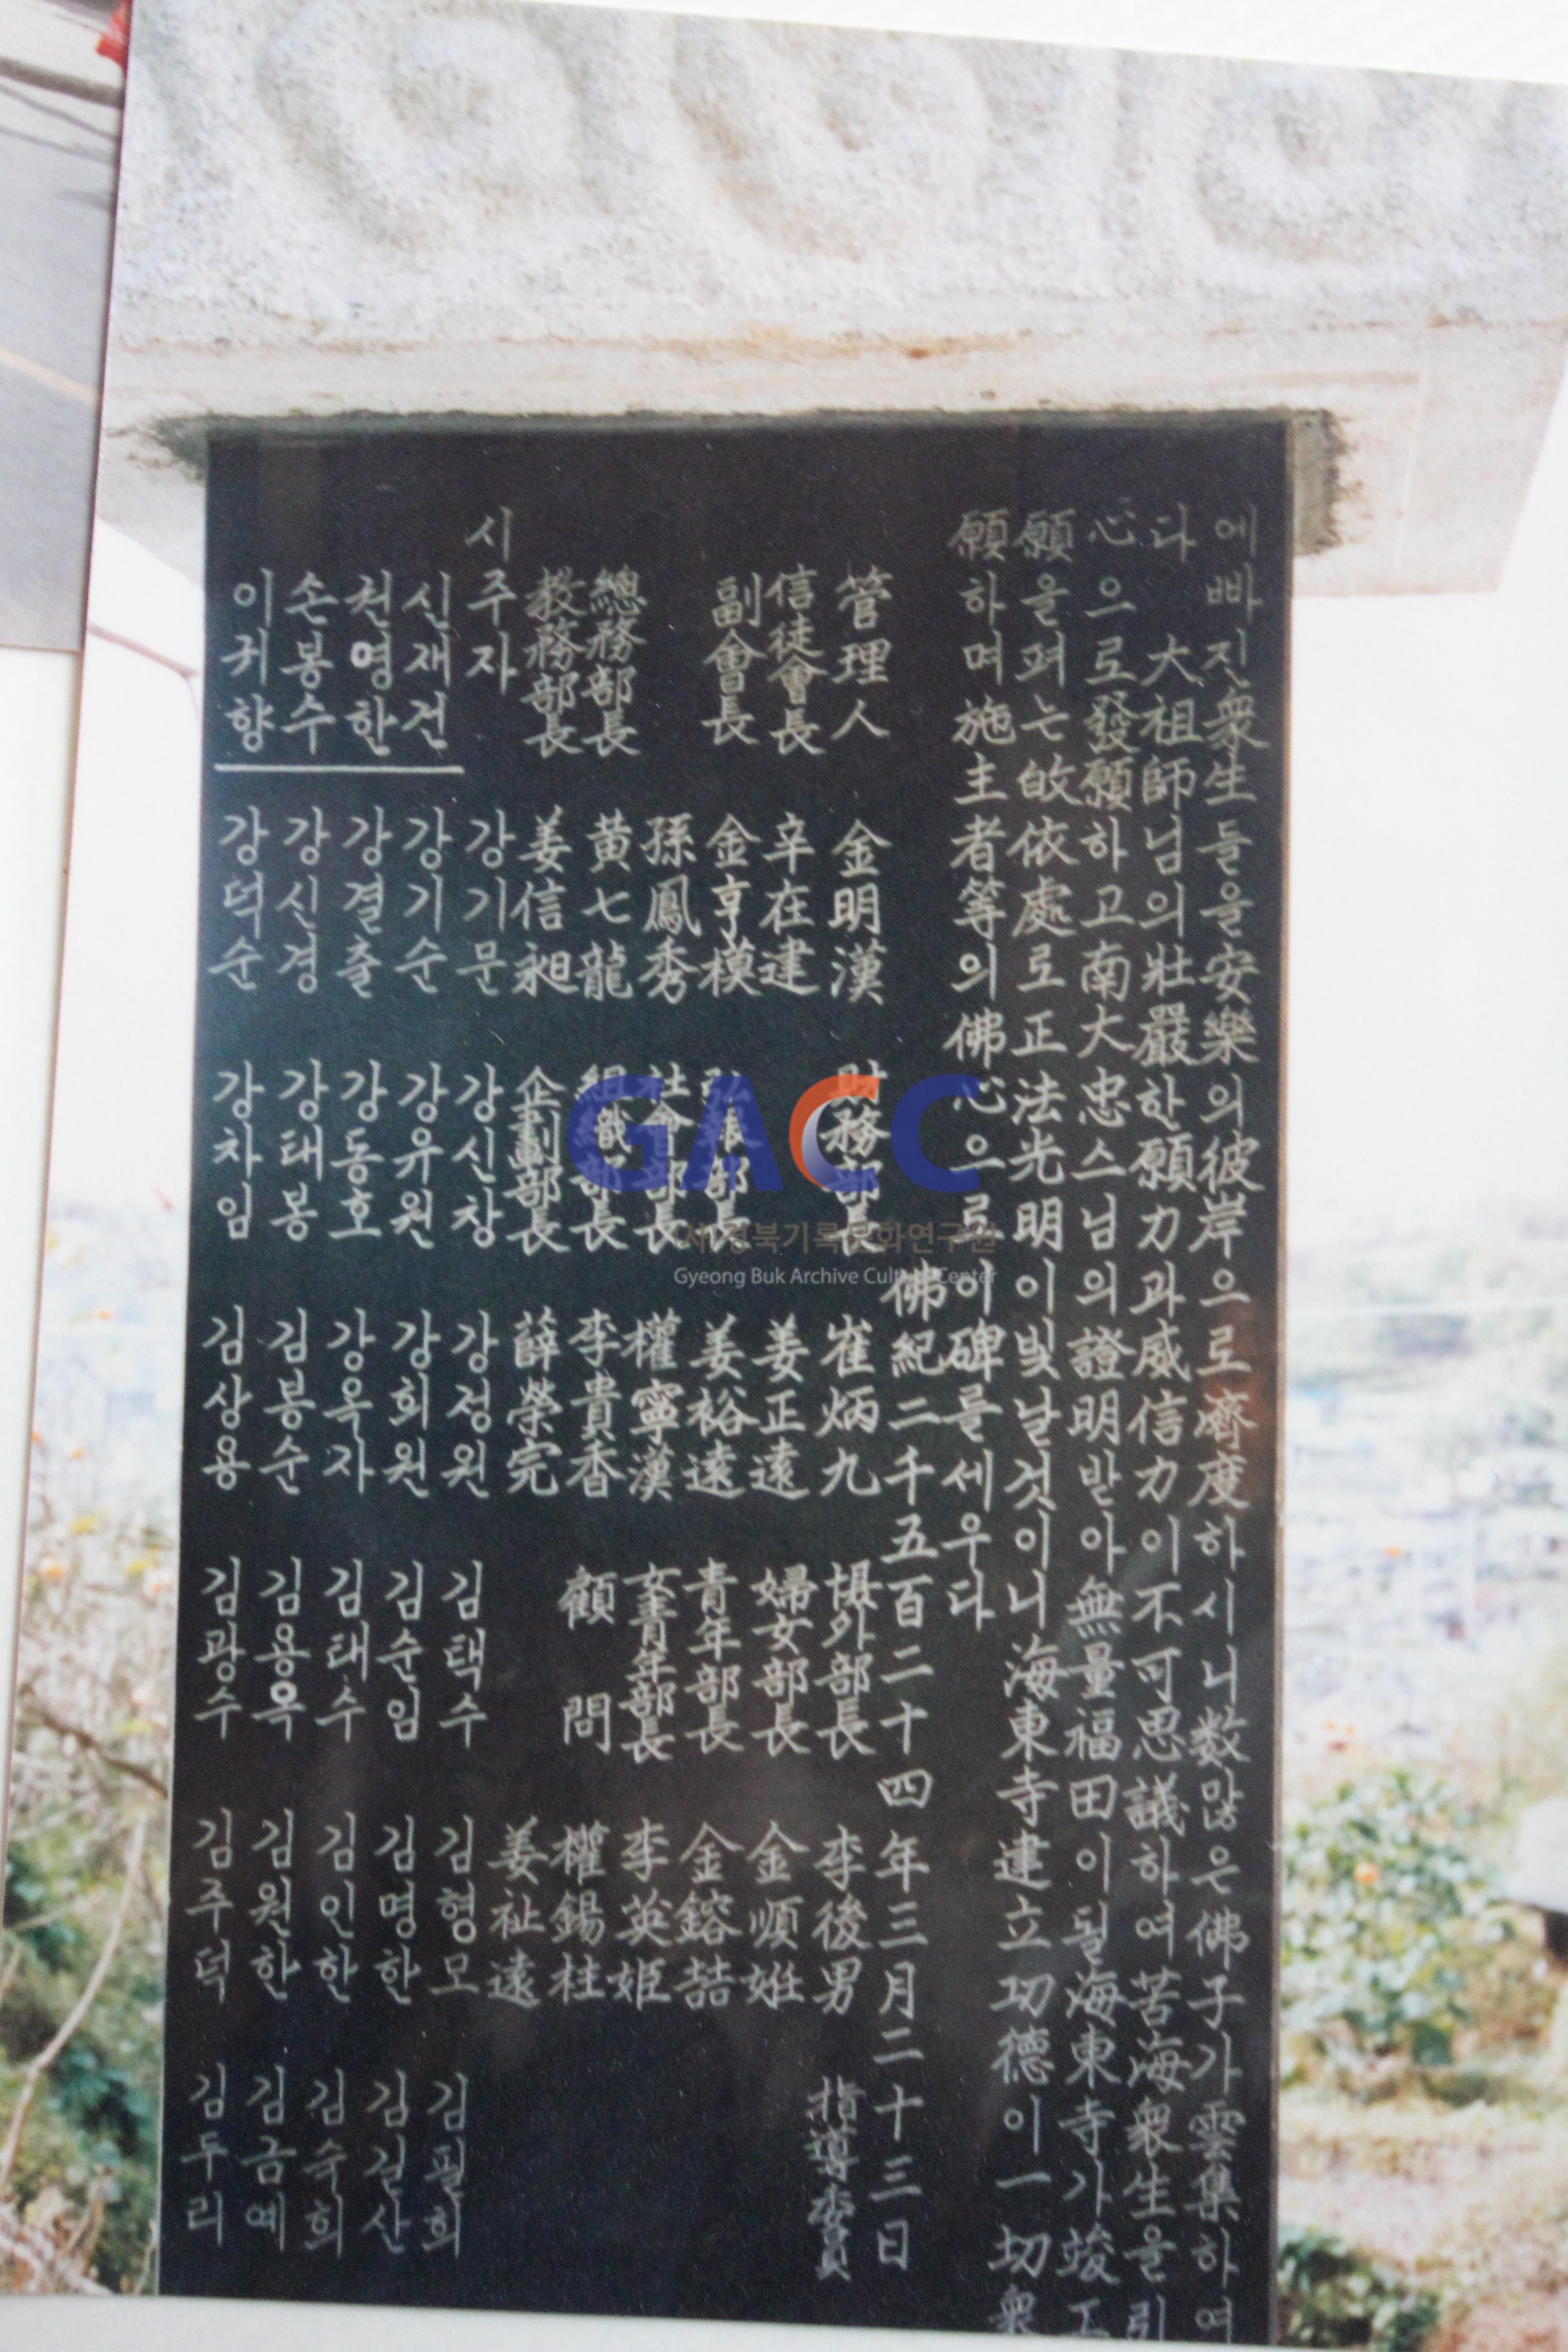 에 빠진 衆生들을 安樂의 彼岸으로 濟度하시니 数많은 佛子가 雲集하여
다 大祖師님의 壯嚴한 願力과 威信力이 不可思議하여 苦海衆生을 引
心으로 發願하고 南大忠스님의 證明받아 無量福田이 될 海東寺가 竣工
願을 펴는 皈依處로 正法光明이 빛날것이니 海東寺 建立功德이 一切衆
願하며 施主者等의 佛心으로 이 碑를 세우다
佛紀二千五百二十四年三月二十三日
管理人 金明漢 財務部長 崔炳九 涉外部長 李後男 指導委員
信徒會長 辛在建 姜正遠 婦女部長 金順姙
副會長 金亨模 弘報部長 姜裕遠 青年部長 金鎔喆
孫鳳秀 社會部長 權寧漢 女青年部長 李英姬
總務部長 黄七龍 組織部長 李貴香 顧問 權錫柱
教務部長 姜信昶 企劃部長 薛榮完 姜祉遠
시주자 강기문 강신창 강정원 김택수 김형모 김필희
신재건 강기순 강유원 강회원 김순임 김명한 김길산
권영한 강결출 강동호 강옥자 김태수 김인한 김숙희
손봉수 강신경 강태봉 김봉순 김용옥 김원한 김금예
이귀향 강덕순 강차임 김상용 김광수 김주덕 김두리
GACC
(사)경북기록문화연구원
Gyeong Buk Archive Culture Center